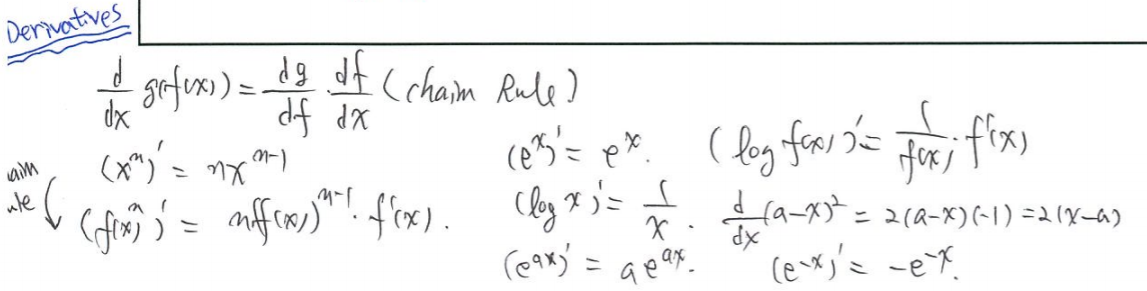 Derivatives
d/dx g(f(x)) = dg/df · df/dx (chain Rule)
(xⁿ)' = nxⁿ⁻¹
(f(x)ⁿ)' = nf(x)ⁿ⁻¹ · f'(x).
(eˣ)' = eˣ.
(log f(x))' = 1/f(x) · f'(x)
(log x)' = 1/x.
d/dx (a-x)² = 2(a-x)(-1) = 2(x-a)
(eᵃˣ)' = aeᵃˣ.
(e⁻ˣ)' = -e⁻ˣ.